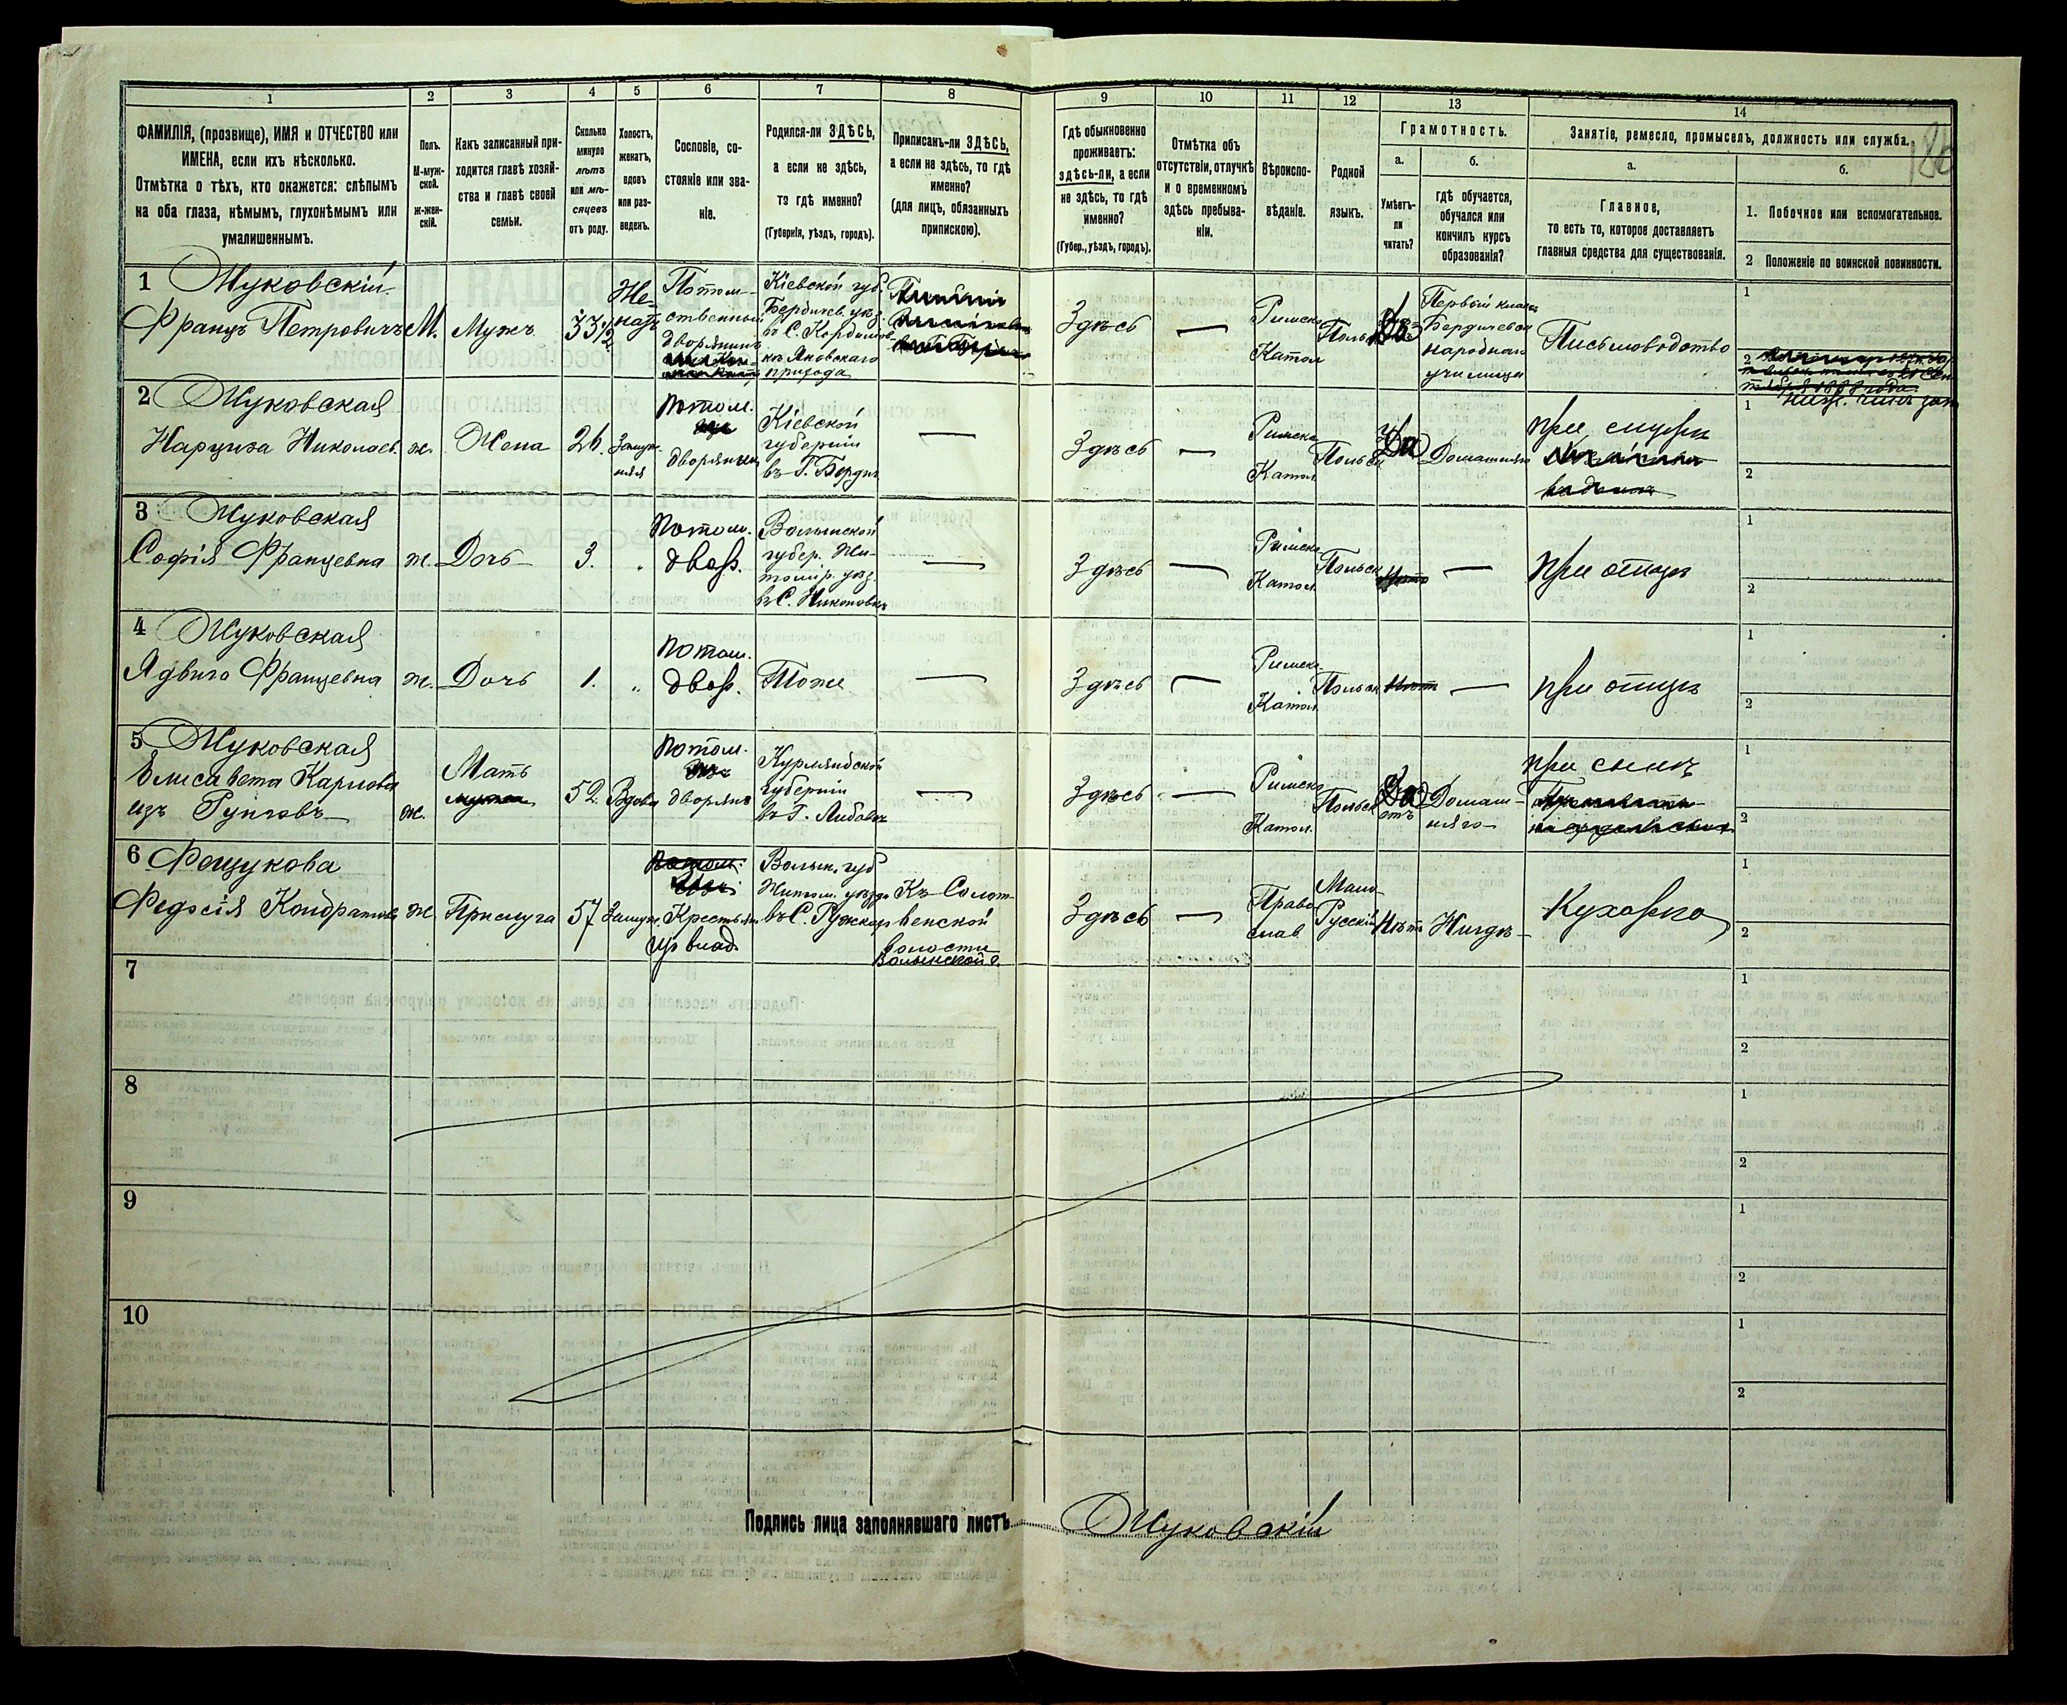 1 2 3 4 5 6 7 8 9 10 11 12 13 14
186
ФАМИЛІЯ, (прозвище), ИМЯ и ОТЧЕСТВО или
ИМЕНА, если ихъ нѣсколько.
Отмѣтка о тѣхъ, кто окажется: слѣпымъ
на оба глаза, нѣмымъ, глухонѣмымъ или
умалишеннымъ.
Полъ.
М-муж-
ской.
ж-жен-
скій.
Какъ записанный при-
ходится главѣ хозяй-
ства и главѣ своей
семьи.
Сколько
минуло
лѣтъ
или мѣ-
сяцевъ
отъ роду.
Холостъ,
женатъ,
вдовъ
или раз-
веденъ.
Сословіе, со-
стояніе или зва-
ніе.
Родился-ли ЗДѢСЬ,
а если не здѣсь,
то гдѣ именно?
(Губернія, уѣздъ, городъ).
Приписанъ-ли ЗДѢСЬ,
а если не здѣсь, то гдѣ
именно?
(для лицъ, обязанныхъ
припискою).
Гдѣ обыкновенно
проживаетъ:
здѣсь-ли, а если
не здѣсь, то гдѣ
именно?
(Губер., уѣздъ, городъ).
Отмѣтка объ
отсутствіи, отлучкѣ
и о временномъ
здѣсь пребыва-
ніи.
Вѣроиспо-
вѣданіе.
Родной
языкъ.
Грамотность.
а.
Умѣетъ-
ли
читать?
б.
гдѣ обучается,
обучался или
кончилъ курсъ
образованія?
Занятіе, ремесло, промыселъ, должность или служба.
а.
Главное,
то есть то, которое доставляетъ
главныя средства для существованія.
б.
1. Побочное или вспомогательное.
2 Положеніе по воинской повинности.
1 Жуковскій
Францъ Петровичъ
М.
Мужъ
33 1/2
Же-
натъ
Потом-
ственный
дворянинъ
Кіевской губ.
Бердичев. уѣз.
въ С.
прихода
Здѣсь
—
Римско
Катол
Польск
Да
Первый классъ
Бердичевск
народнаго
училища
Письмоводство
1
2
2 Жуковская
Нарциза Николаев.
ж.
Жена
26.
Замуж-
няя
потом.
дворянка
Кіевской
губерніи
въ Г. Бердич
—
Здѣсь
—
Римско
Катол.
Польск
Да
Домашняго
при мужѣ
1
2
3 Жуковская
Софія Францевна
ж.
Дочь
3.
"
потом.
двор.
Волынской
губер. Жи-
томір. уѣз.
въ С.
—
Здѣсь
—
Римско
Катол.
Польск
Нѣтъ
—
при отцѣ
1
2
4 Жуковская
Ядвига Францевна
ж.
Дочь
1.
"
потом.
двор.
Тоже
—
Здѣсь
—
Римско
Катол.
Польск
Нѣтъ
—
при отцѣ
1
2
5 Жуковская
Елисавета Карлова
изъ
ж.
Мать
мужа
52.
Вдова
потом.
дворян
Курляндской
губерніи
въ Г. Либавѣ
—
Здѣсь
—
Римско
Катол.
Польск
Да
Домаш-
няго
при сынѣ
1
2
6 Фещукова
Федосія Кондратов.
ж.
Прислуга
57
Замуж.
потом.
Крестьян
Волын. губ
Житом. уѣзда
въ С.
Къ Солот-
венской
волости
Волынской г.
Здѣсь
—
Право
слав
Мало-
Русскій
Нѣтъ
Нигдѣ
Кухарка
1
2
7
1
2
8
1
2
9
1
2
10
1
2
Подпись лица заполнявшаго листъ
Жуковскій